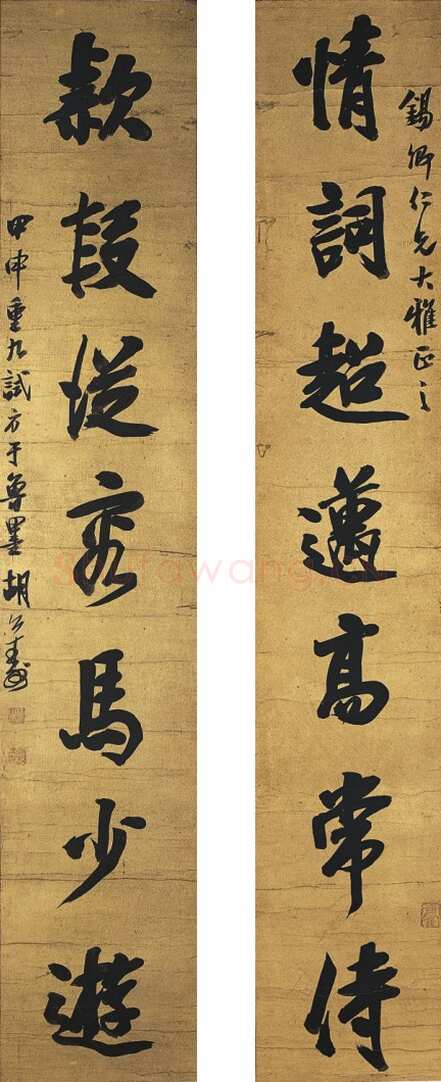 錫卿仁兄大雅正之
情詞超邁高常侍
款段從容馬少遊
甲申重九試方于魯墨胡公壽
Shufawang.CN